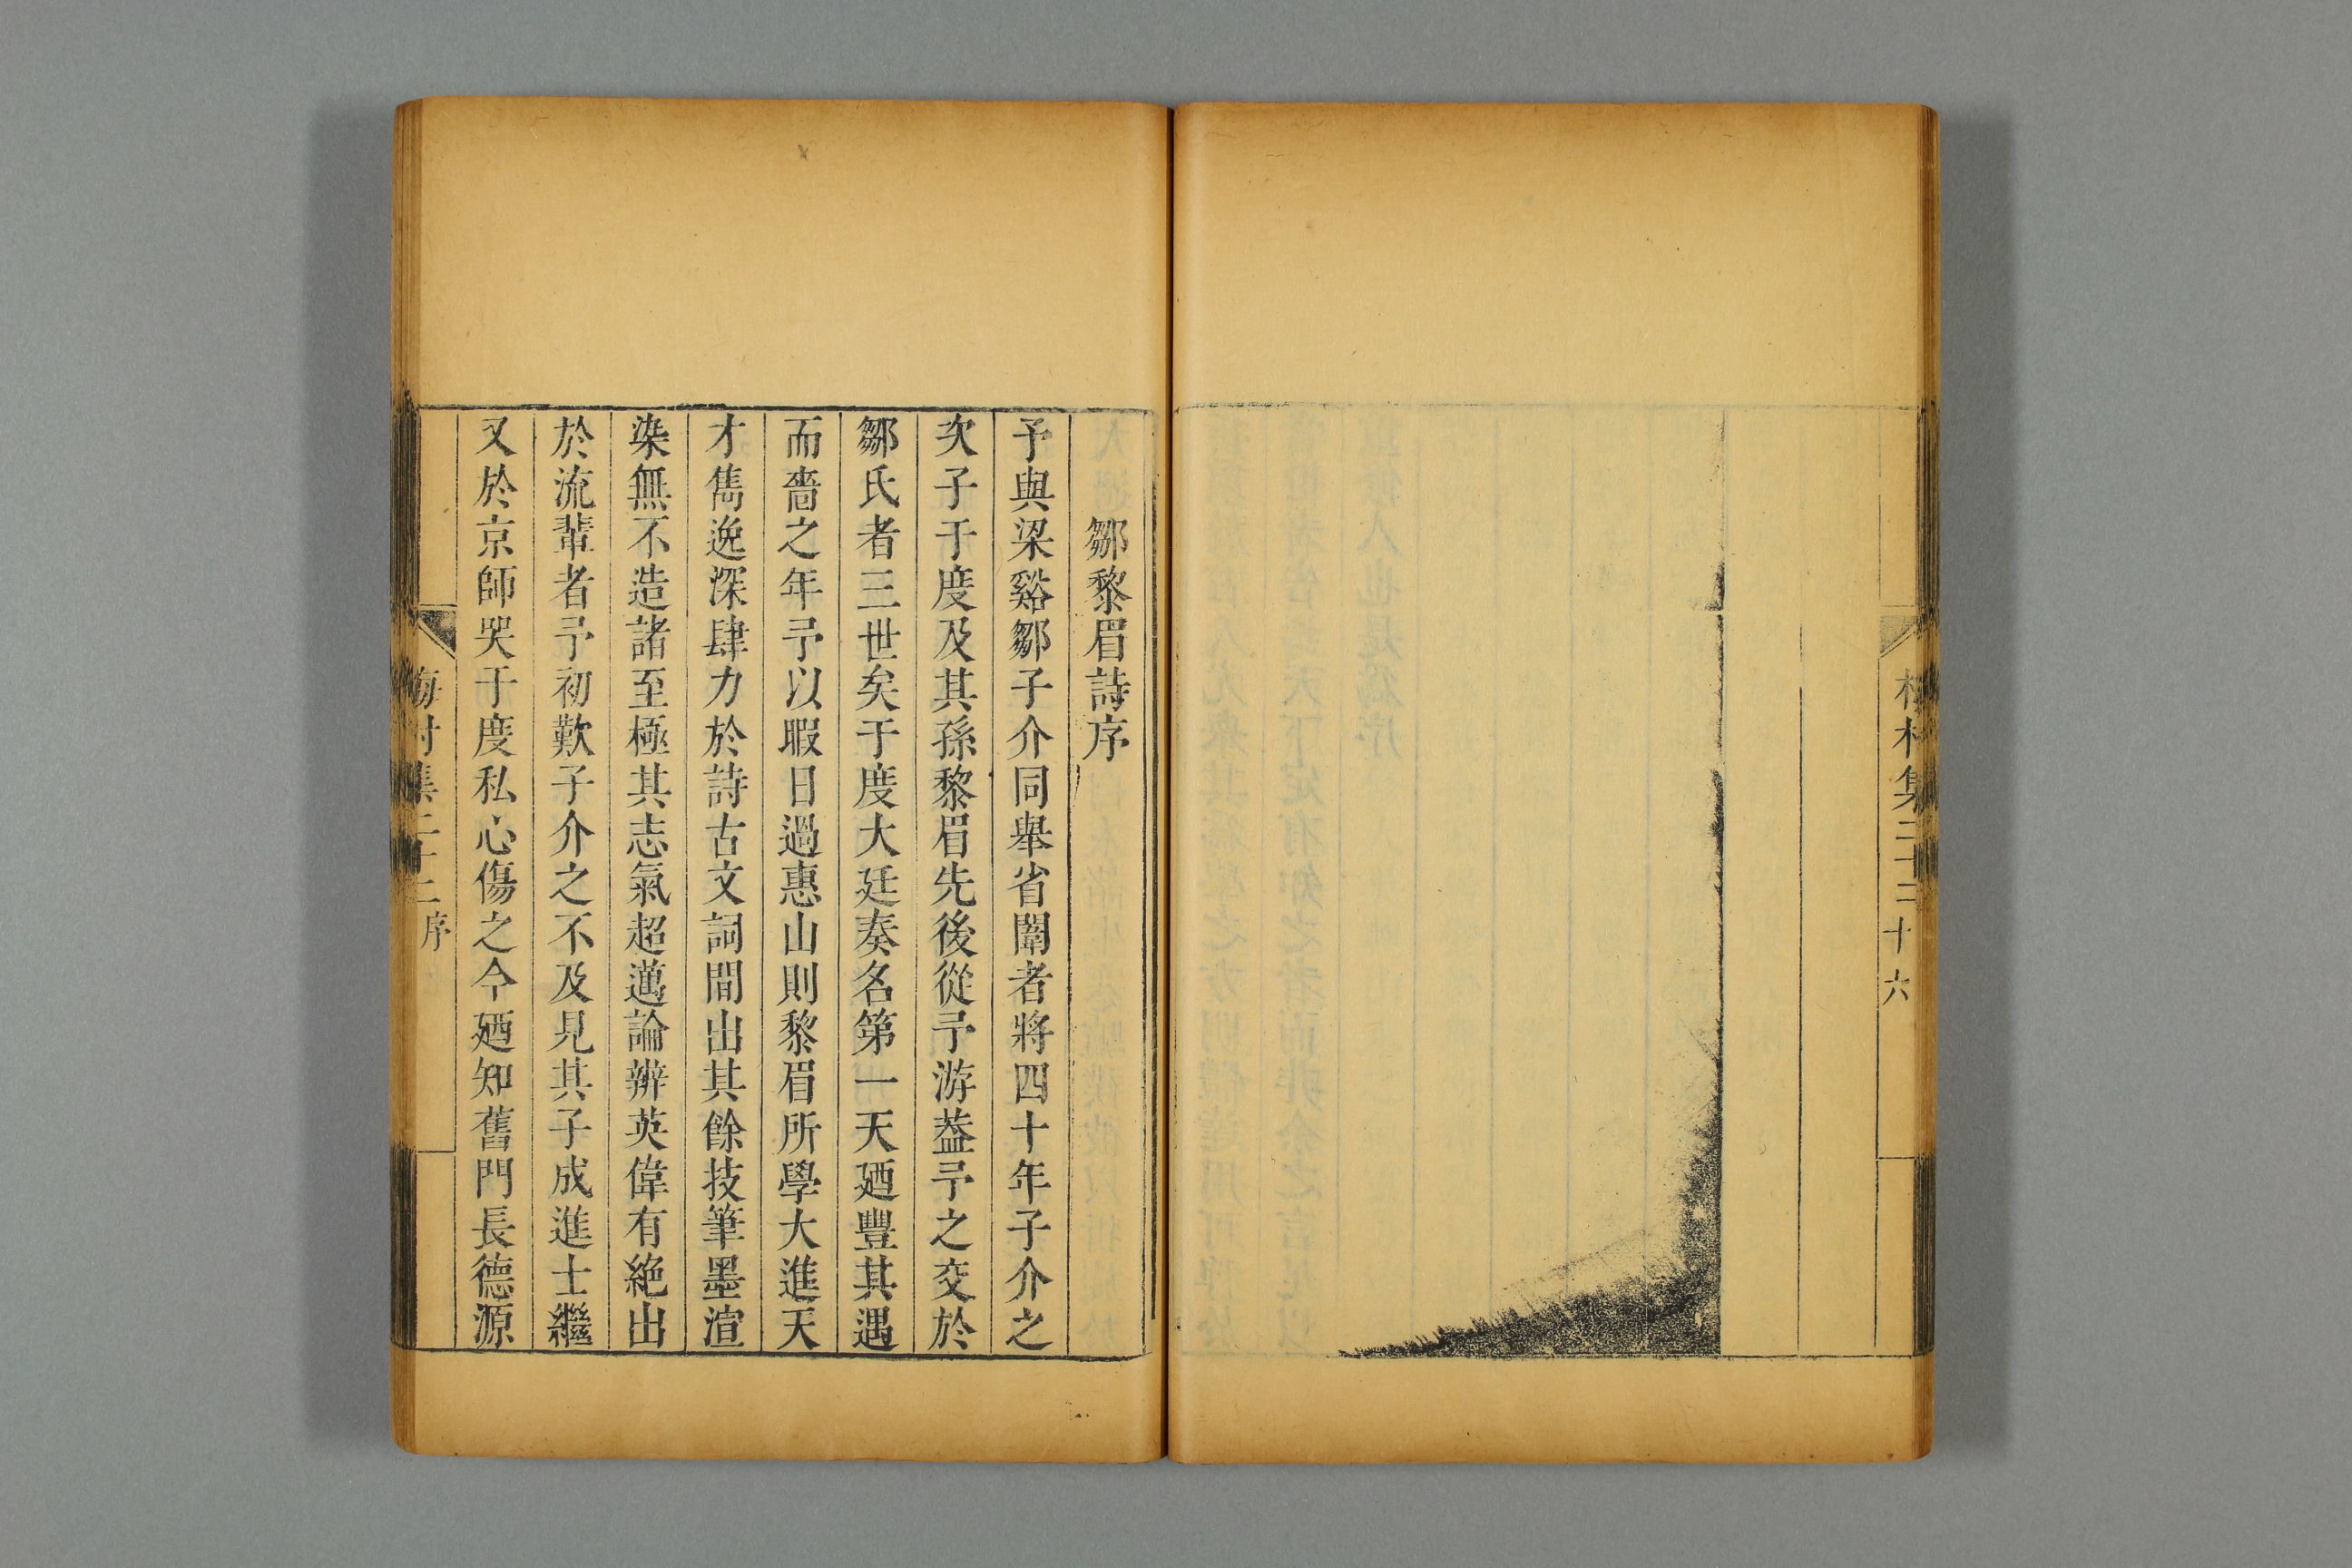 梅村集二十二 十六
鄒黎眉詩序
予與梁谿鄒子介同舉省闈者將四十年子介之
次子于度及其孫黎眉先後從予游葢予之交於
鄒氏者三世矣于度大廷奏名第一天廼豐其遇
而嗇之年予以暇日過惠山則黎眉所學大進天
才雋逸深肆力於詩古文詞間出其餘技筆墨渲
染無不造諸至極其志氣超邁論辨英偉有絶出
於流輩者予初歎子介之不及見其子成進士繼
又於京師哭于度私心傷之今廼知舊門長德源
梅村集二十二 序